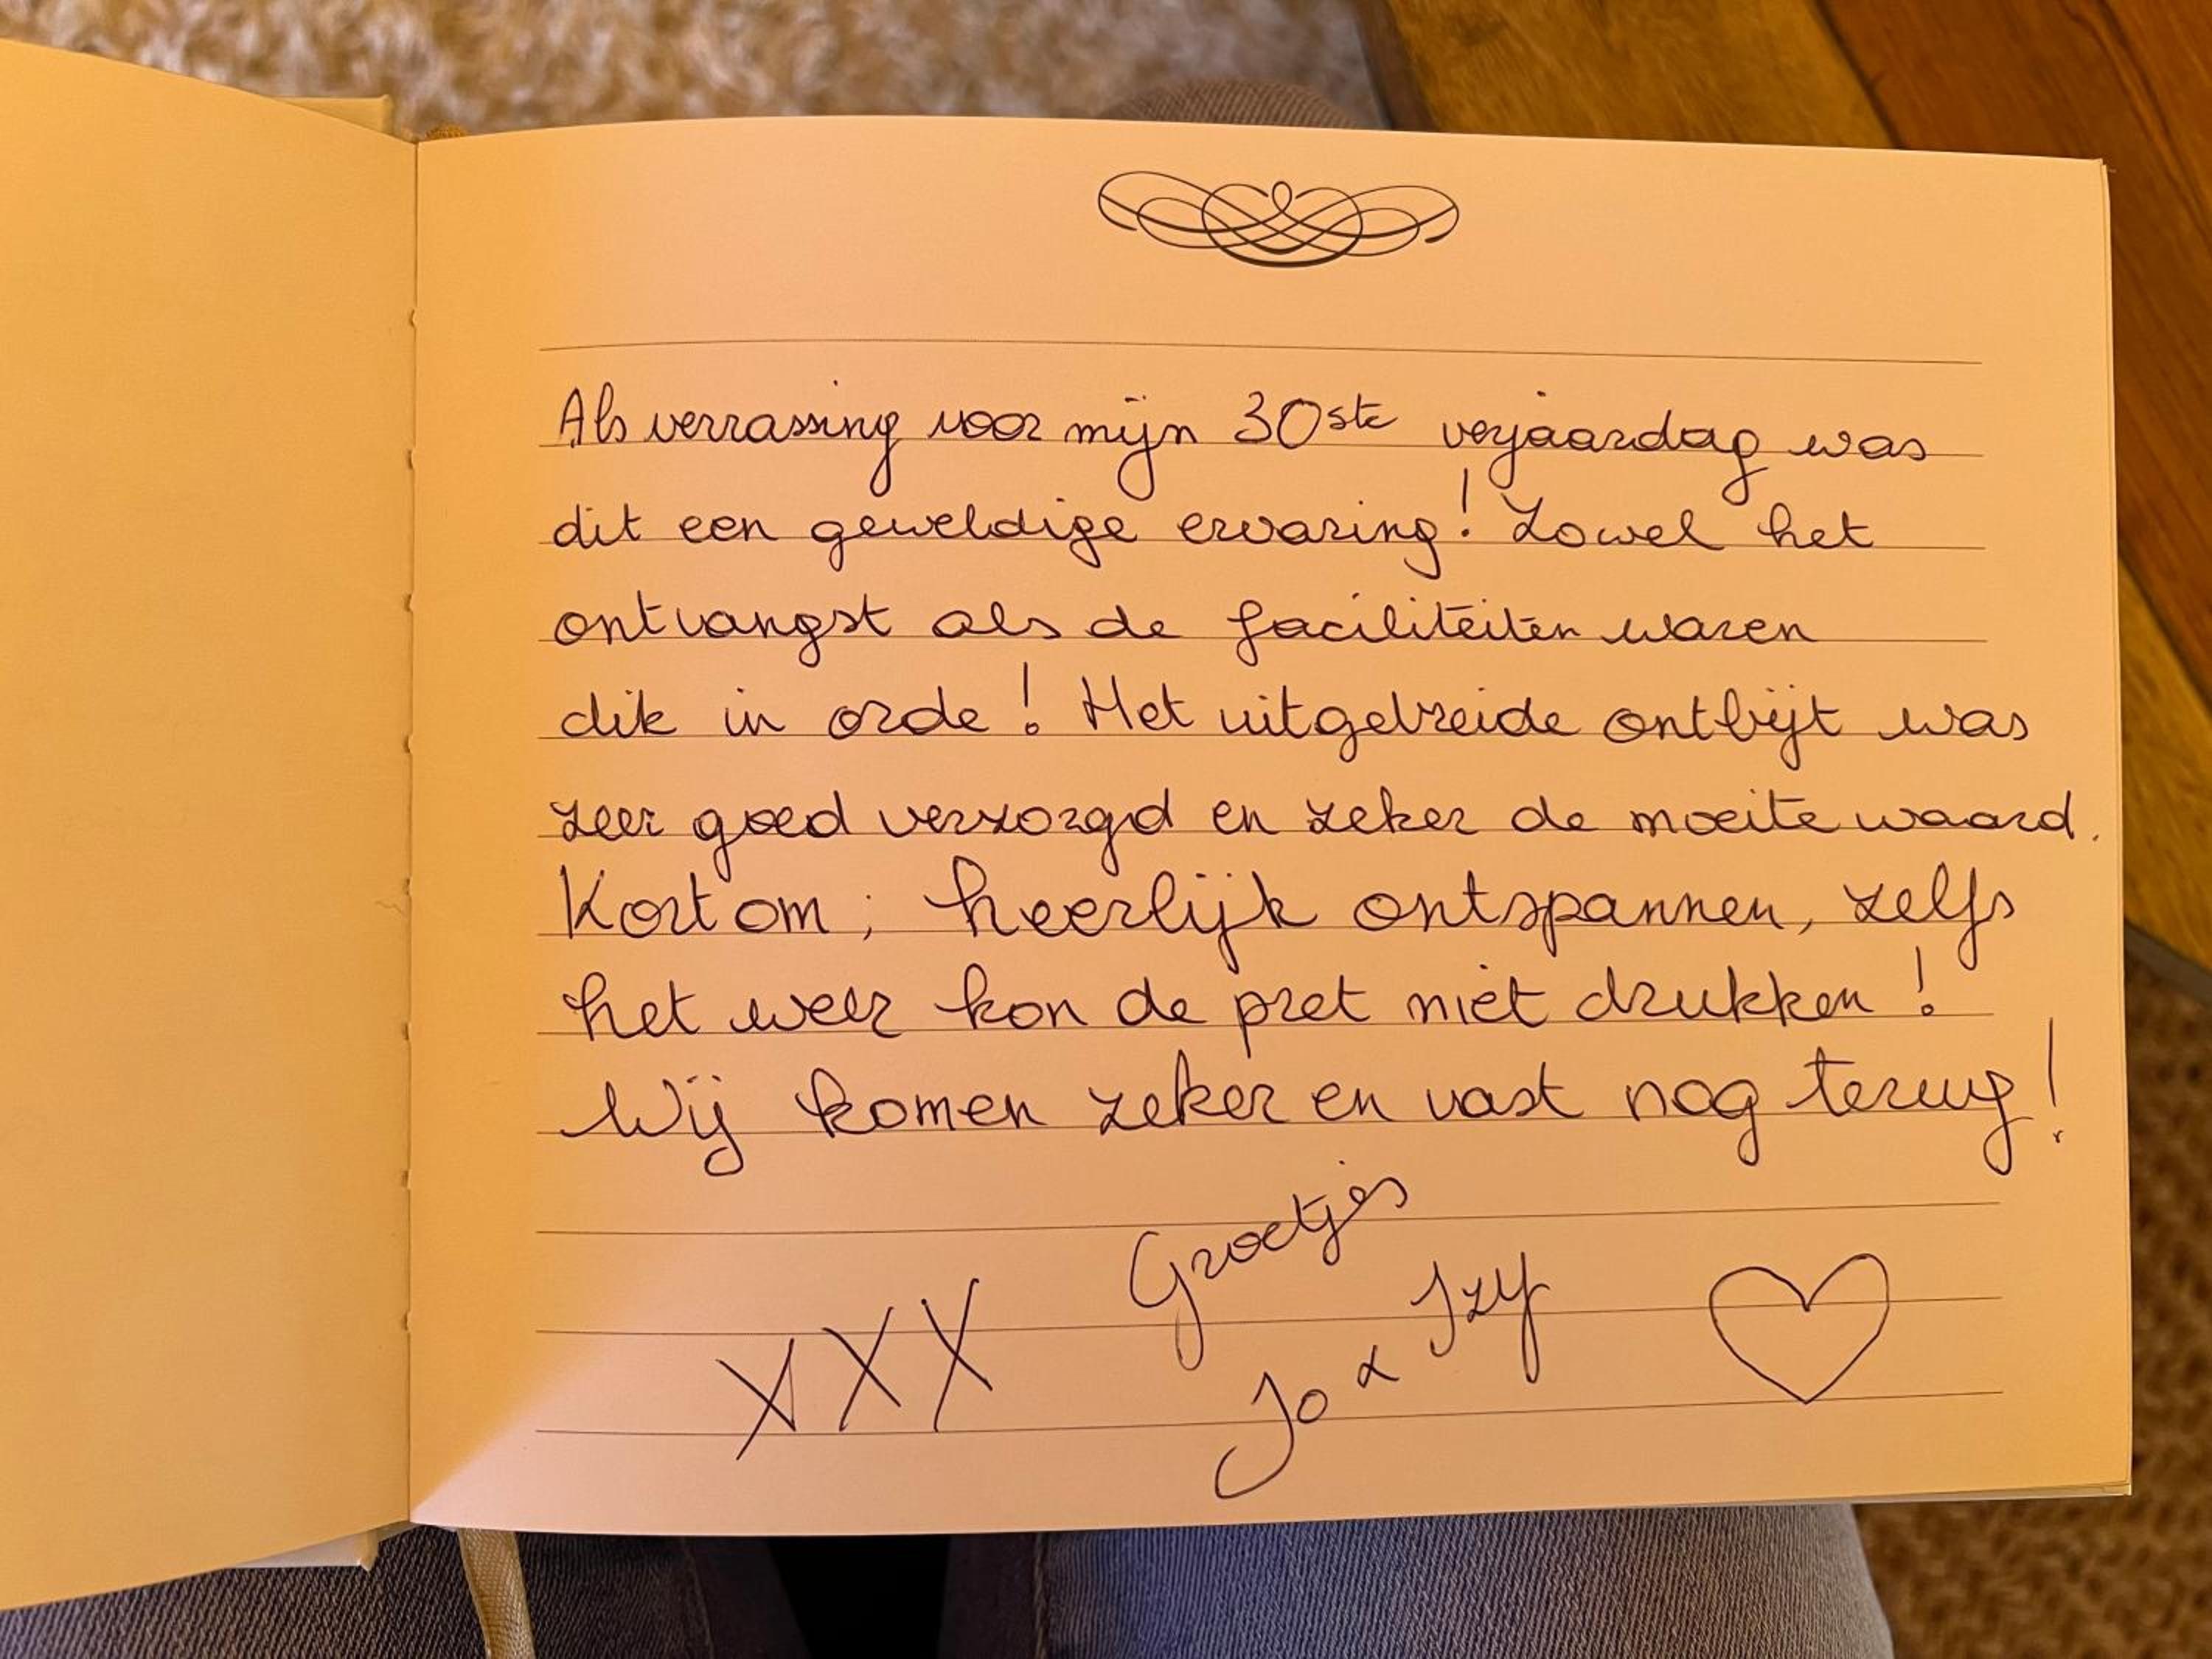 Als verrassing voor mijn 30ste verjaardag was
dit een geweldige ervaring! Zowel het
ontvangst als de faciliteiten waren
dik in orde! Het uitgebreide ontbijt was
zeer goed verzorgd en zeker de moeite waard.
Kortom; heerlijk ontspannen, zelfs
het weer kon de pret niet drukken!
Wij komen zeker en vast nog terug!
Groetjes
XXX Jo & Izy